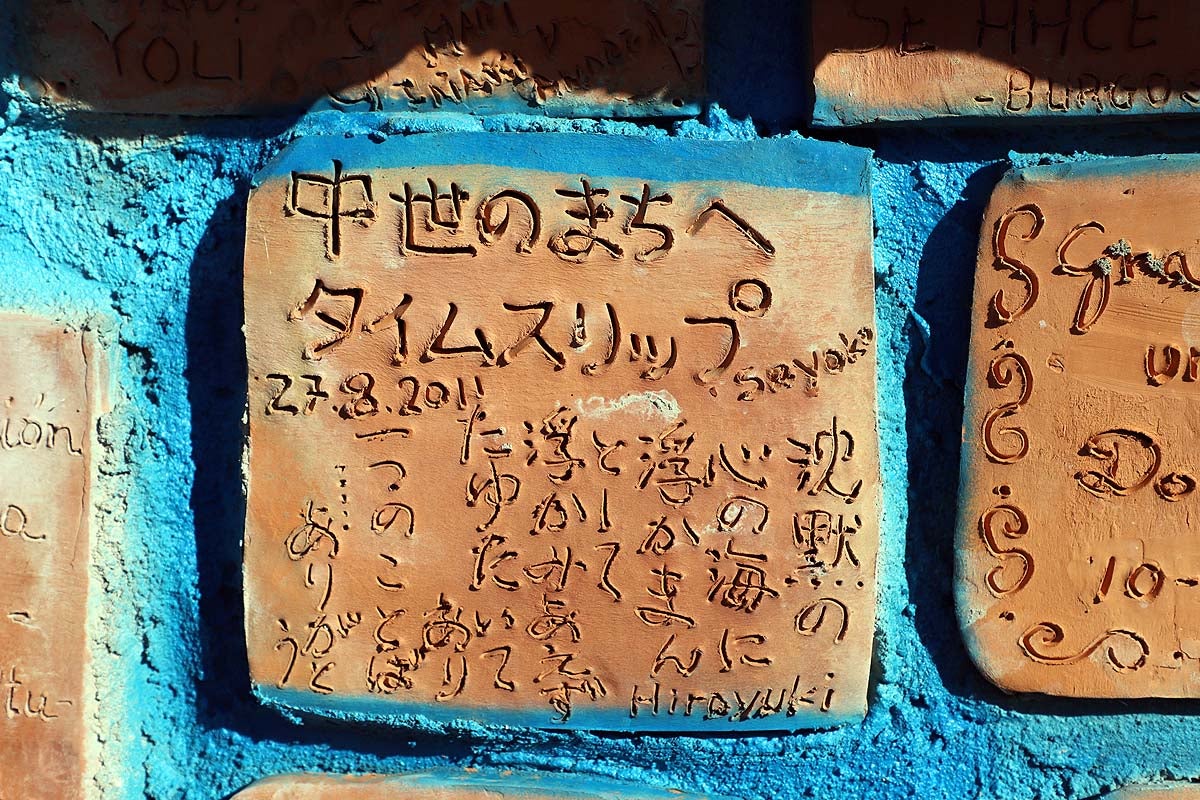 YOLI
SE HHCE
-BURGOS
中世のまちへ
タイムスリップ
Sayoko
27.8.2011
沈黙の
心の海に
浮かまん
として
浮かみあえず
たゆたいて
一つのことばあり
……ありがとう
Hiroyuki
Gra
un
Do
10-
ión
a
-
tu-